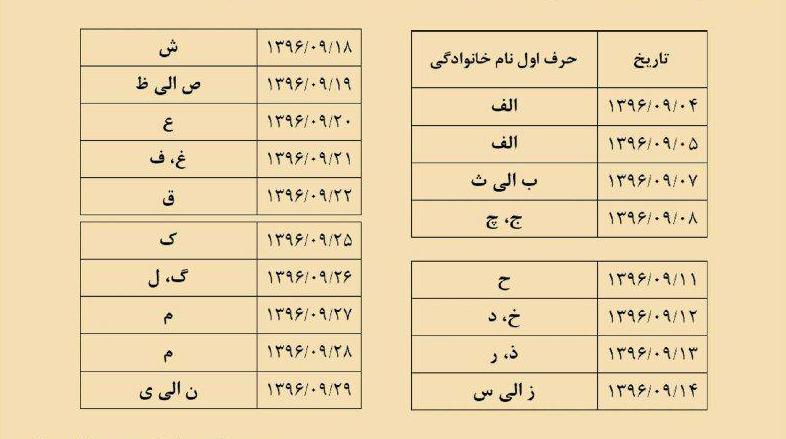 تاریخ حرف اول نام خانوادگی
۱۳۹۶/۰۹/۰۴ الف
۱۳۹۶/۰۹/۰۵ الف
۱۳۹۶/۰۹/۰۷ ب الی ث
۱۳۹۶/۰۹/۰۸ ج، چ
۱۳۹۶/۰۹/۱۱ ح
۱۳۹۶/۰۹/۱۲ خ، د
۱۳۹۶/۰۹/۱۳ ذ، ر
۱۳۹۶/۰۹/۱۴ ز الی س
۱۳۹۶/۰۹/۱۸ ش
۱۳۹۶/۰۹/۱۹ ص الی ظ
۱۳۹۶/۰۹/۲۰ ع
۱۳۹۶/۰۹/۲۱ غ، ف
۱۳۹۶/۰۹/۲۲ ق
۱۳۹۶/۰۹/۲۵ ک
۱۳۹۶/۰۹/۲۶ گ، ل
۱۳۹۶/۰۹/۲۷ م
۱۳۹۶/۰۹/۲۸ م
۱۳۹۶/۰۹/۲۹ ن الی ی